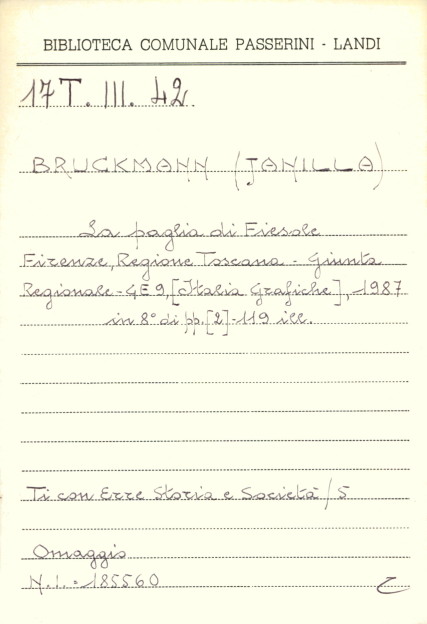 BIBLIOTECA COMUNALE PASSERINI - LANDI
17 T. III. 42.
BRUCKMANN (JANILLA)
La paglia di Fiesole
Firenze, Regione Toscana - Giunta
Regionale - GE9, [Italia Grafiche], 1987
in 8° di pp. [2]-119 ill.
Ti con Erre Storia e Società / 5
Omaggio
N.i. = 185560